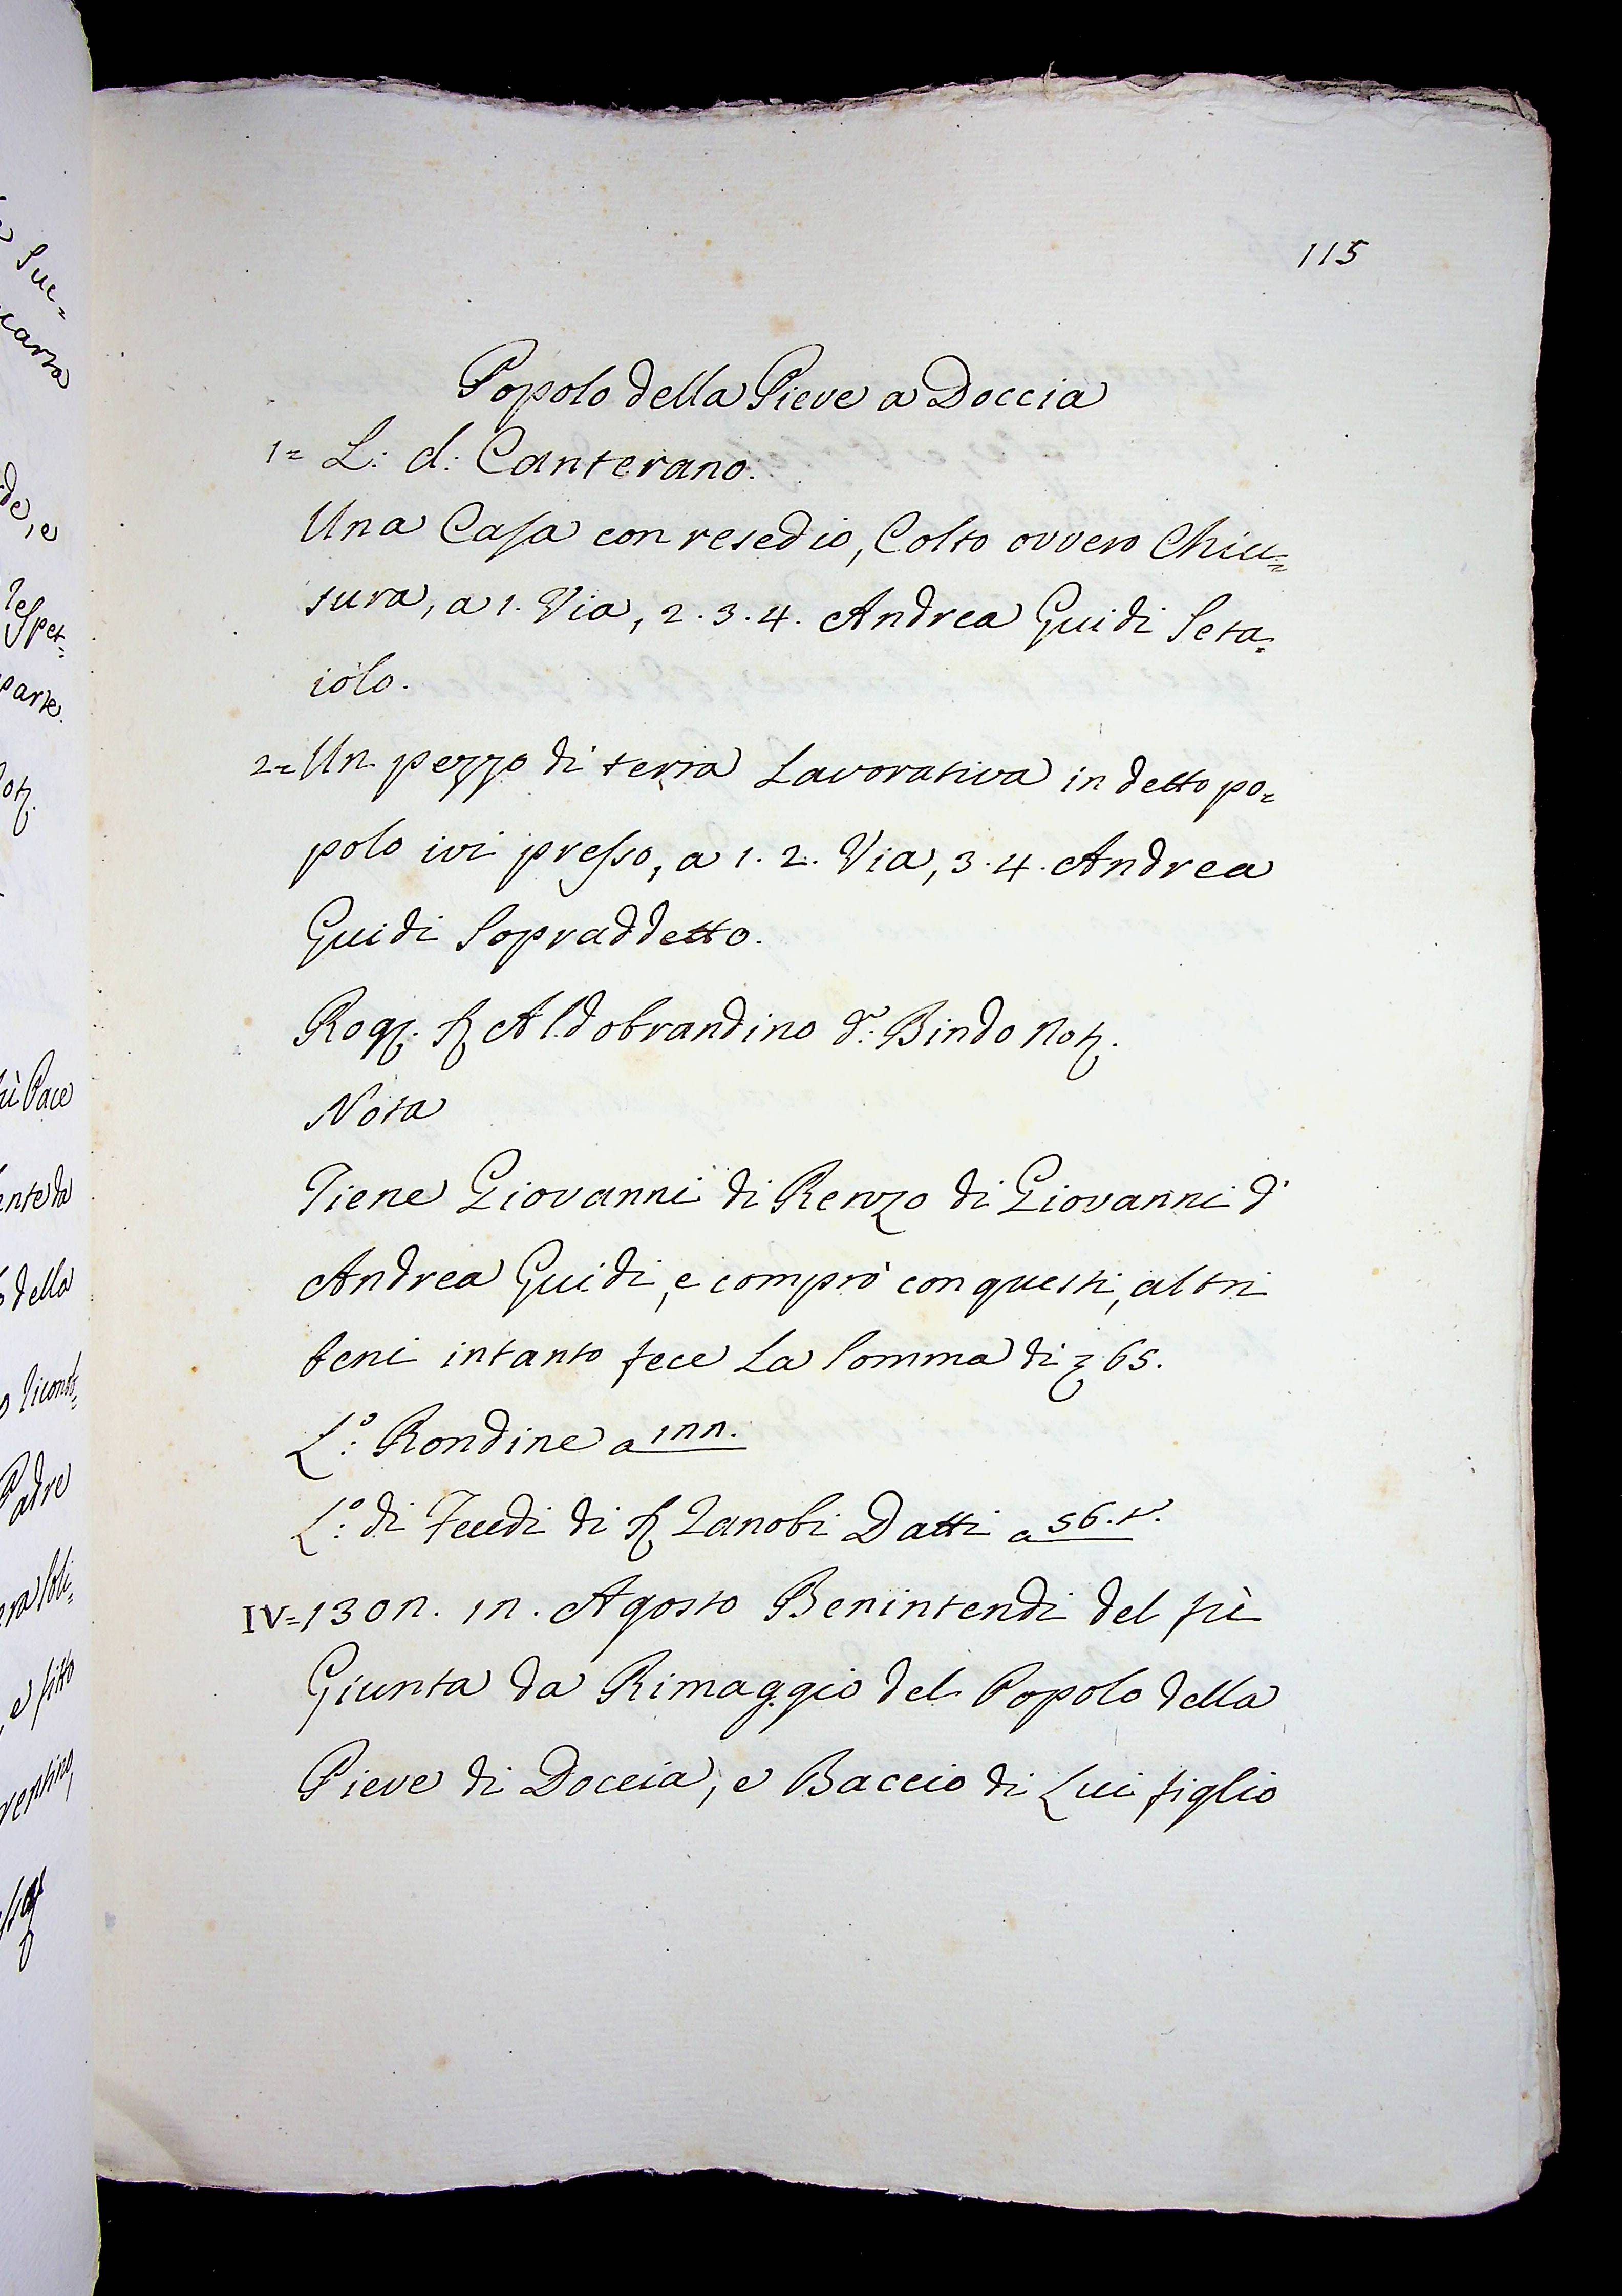 115
Popolo della Pieve a Doccia
1= L: d: Canterano.
Una Casa con resedio, Colto ovvero Chiu=
sura, a 1. Via, 2. 3. 4. Andrea Guidi Seta=
iolo.
2= Un pezzo di terra Lavorativa in detto po=
polo ivi presso, a 1. 2. Via, 3. 4. Andrea
Guidi Sopraddetto.
Rog. Aldobrandino d: Bindo Not.
Nota
Tiene Giovanni di Renzo di Giovanni d'
Andrea Guidi, e comprò con questi, altri
beni intanto fece La Somma di 65.
L.º: Rondine a
L.º: di Feudi di Zanobi Datti a 56.
IV= Agosto Benintendi del fù
Giunta da Rimaggio del Popolo della
Pieve di Doccia, e Baccio di Lui figlio